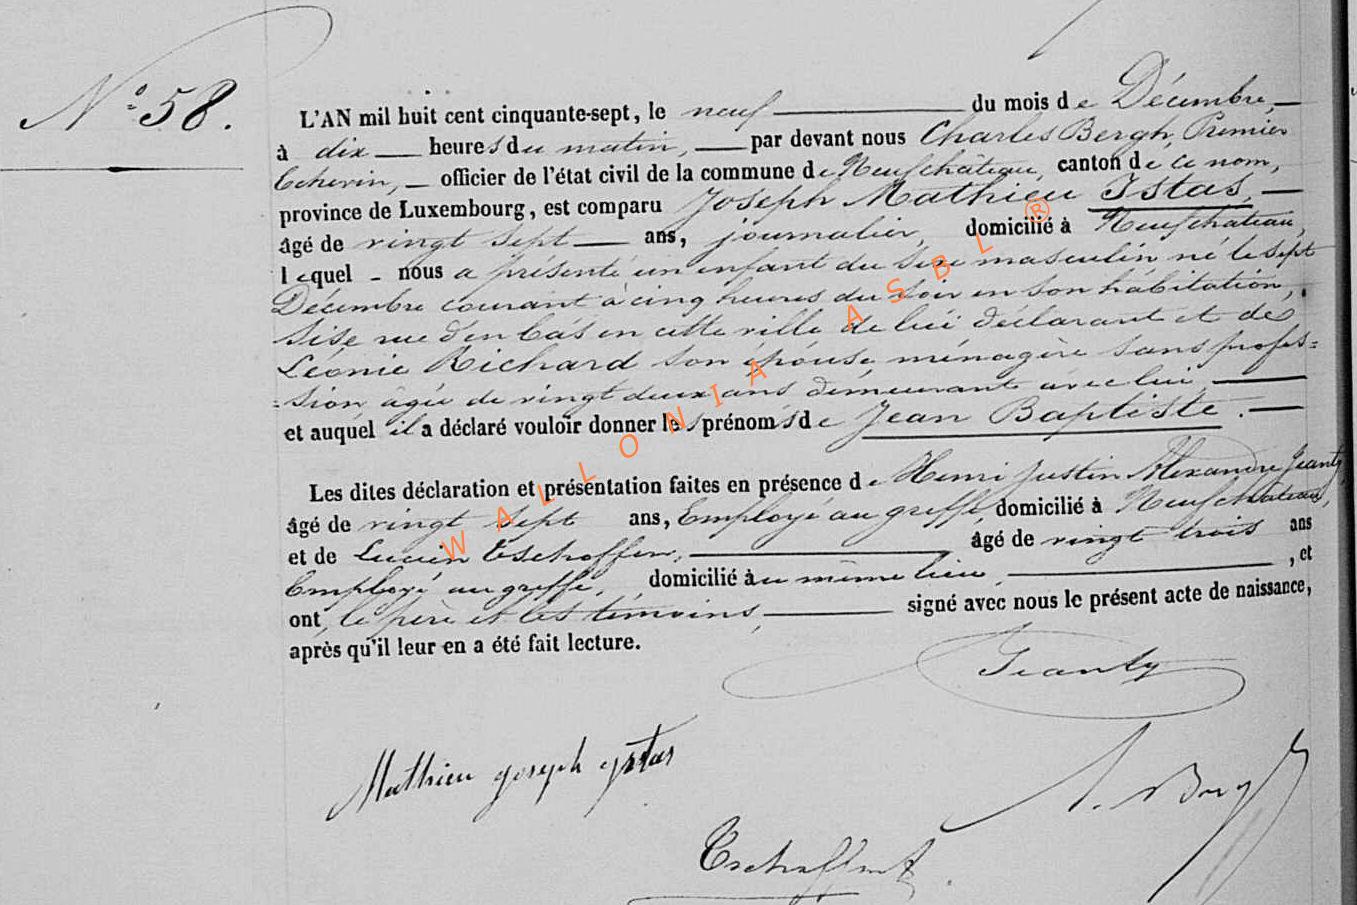 N° 58.
L'AN mil huit cent cinquante-sept, le neuf du mois de Décembre,
à dix heures du matin, par devant nous Charles Bergh, Premier
Echevin, officier de l'état civil de la commune de Neufchâteau, canton de ce nom,
province de Luxembourg, est comparu Joseph Mathieu Istas,
âgé de vingt sept ans, journalier, domicilié à Neufchateau,
lequel nous a présenté un enfant du sexe masculin né le sept
Décembre courant à cinq heures du soir en son habitation,
sise rue d'en bas en cette ville de lui déclarant et de
Léonie Richard son épouse, ménagère sans profes=
=sion âgée de vingt deux ans demeurant avec lui,
et auquel il a déclaré vouloir donner les prénoms de Jean Baptiste.
Les dites déclaration et présentation faites en présence de Henri Justin Alexandre Jeanty,
âgé de vingt sept ans, Employé au greffe, domicilié à Neufchateau,
et de Lucien Tschoffen, âgé de vingt trois ans
Employé au greffe, domicilié au même lieu, , et
ont, le père et les témoins, signé avec nous le présent acte de naissance,
après qu'il leur en a été fait lecture.
Jeanty
Mathieu joseph ystas
Bergh
Tschoffen
WALLONIA ASBL ®